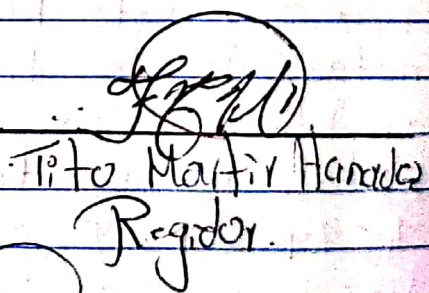 Tito Martir Hernandez
Regidor.